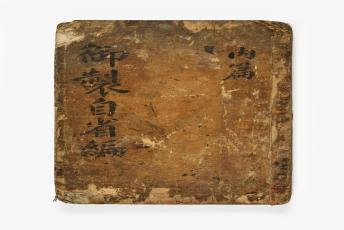 御製自省編
內篇